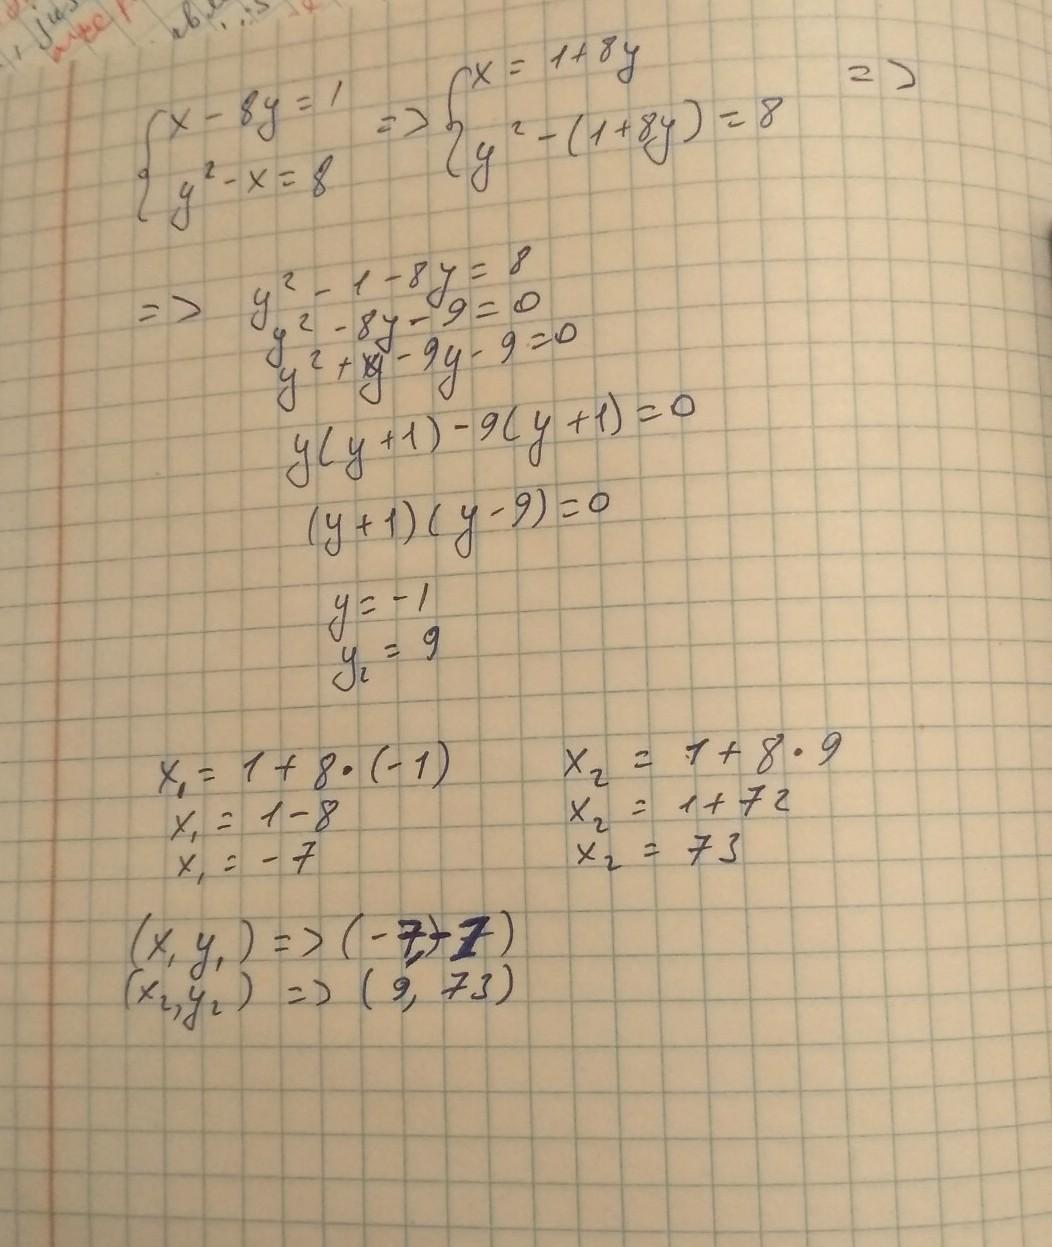 {x - 8y = 1 => {x = 1+8y =>
{y² - x = 8 {y² - (1+8y) = 8
=> y² - 1 - 8y = 8
y² - 8y - 9 = 0
y² + y - 9y - 9 = 0
y(y+1) - 9(y+1) = 0
(y+1)(y-9) = 0
y = -1
y₂ = 9
x₁ = 1 + 8·(-1)
x₁ = 1 - 8
x₁ = -7
x₂ = 1 + 8·9
x₂ = 1 + 72
x₂ = 73
(x₁ y₁) => (-7,
(x₂, y₂) => (9, 73)